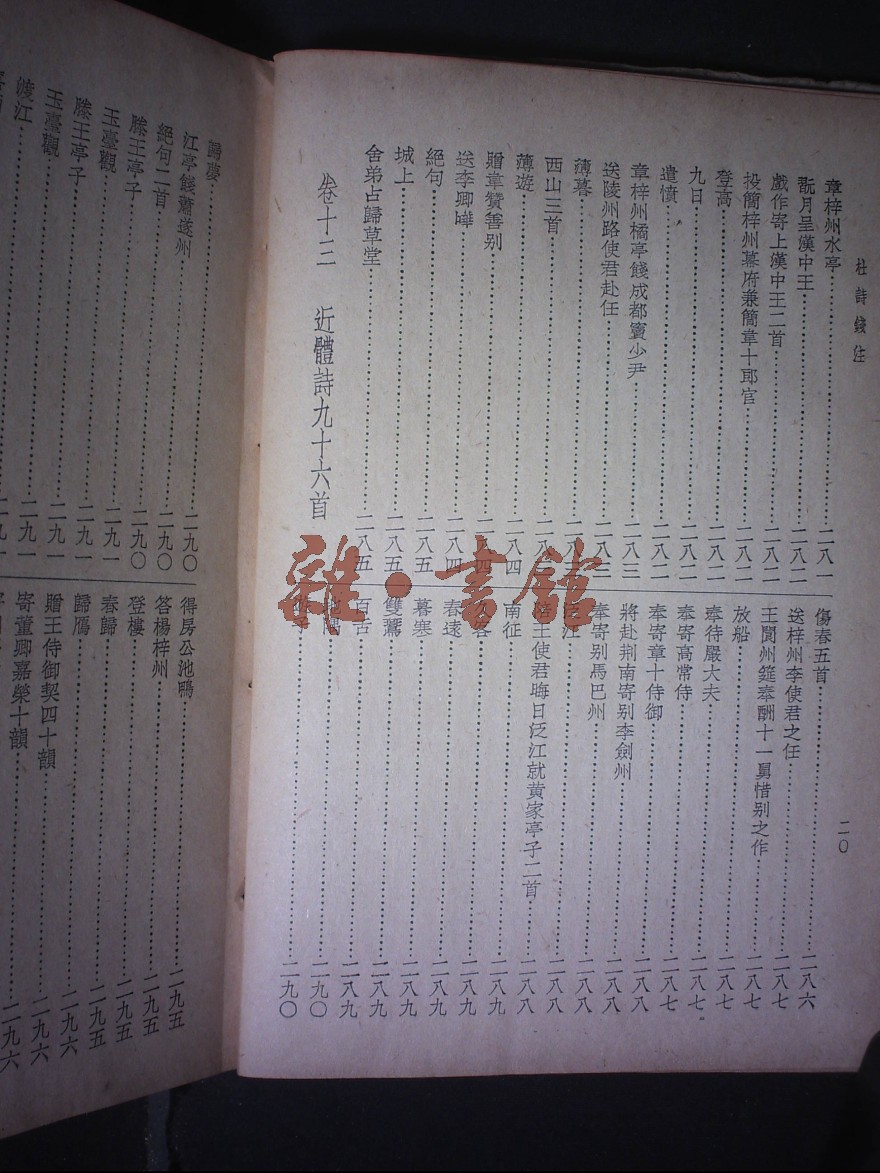 杜詩錢注
二〇
章梓州水亭……二八一
翫月呈漢中王……二八二
戲作寄上漢中王二首……二八二
投簡梓州幕府兼簡韋十郎官……二八二
登高……二八二
九日……二八二
遣憤……二八二
章梓州橘亭餞成都竇少尹……二八三
送陵州路使君赴任……二八三
薄暮……二八三
西山三首……二八三
薄遊……二八四
贈韋贊善别……二八四
送李卿曄……二八四
絕句……二八五
城上……二八五
舍弟占歸草堂……二八五
卷十三 近體詩九十六首
傷春五首……二八六
送梓州李使君之任……二八七
王閬州筵奉酬十一舅惜别之作……二八七
放船……二八七
奉待嚴大夫……二八七
奉寄高常侍……二八七
奉寄章十侍御……二八七
將赴荆南寄别李劍州……二八八
奉寄别馬巴州……二八八
泛江……二八八
陪王使君晦日泛江就黄家亭子二首……二八八
南征……二八八
久客……二八九
春遠……二八九
暮寒……二八九
雙鷰……二八九
百舌……二八九
地隅……二九〇
遊子……二九〇
歸夢……二九〇
江亭餞蕭遂州……二九〇
絕句二首……二九〇
滕王亭子……二九〇
玉臺觀……二九一
滕王亭子……二九一
玉臺觀……二九一
渡江……二九一
得房公池鴨……二九五
答楊梓州……二九五
登樓……二九五
春歸……二九五
歸鴈……二九六
贈王侍御契四十韻……二九六
寄董卿嘉榮十韻……二九六
雜·書館